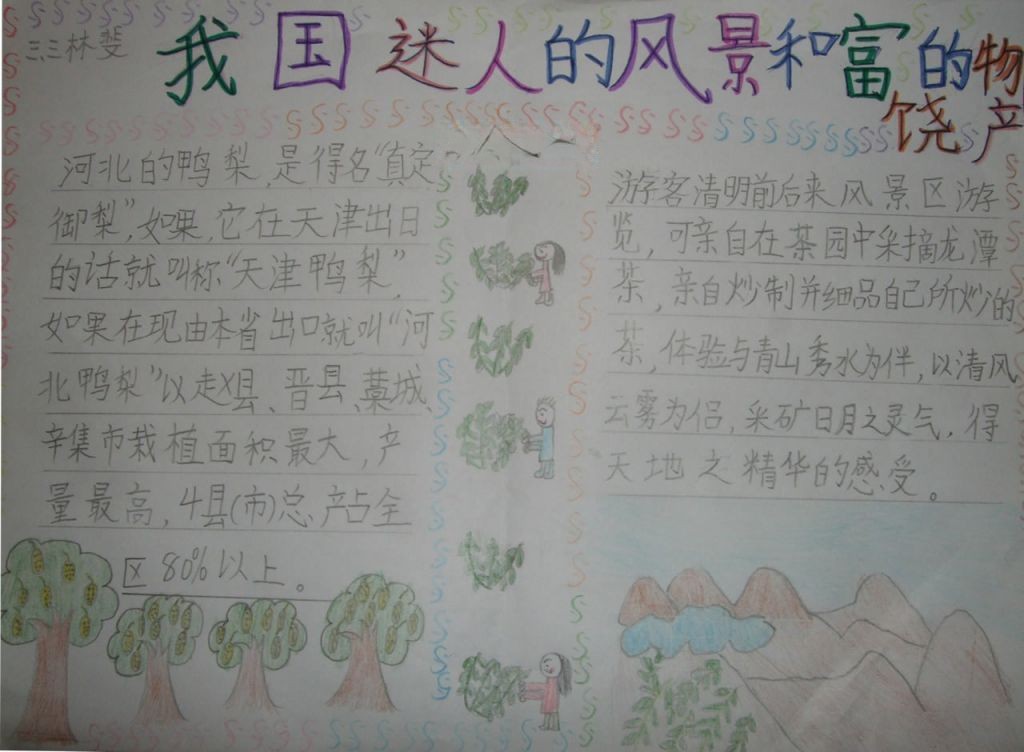 三3林斐
我国迷人的风景和富饶的物产
河北的鸭梨,是得名“真定
御梨”,如果,它在天津出日
的话就叫称“天津鸭梨”,
如果在现由本省出口就叫“河
北鸭梨”以赵县、晋县、藁城、
辛集市栽植面积最大,产
量最高,4县(市)总产占全
区80%以上。
游客清明前后来风景区游
览,可亲自在茶园中采摘龙潭
茶,亲自炒制并细品自己所炒的
茶,体验与青山秀水为伴,以清风
云雾为侣,采矿日月之灵气,得
天地之精华的感受。